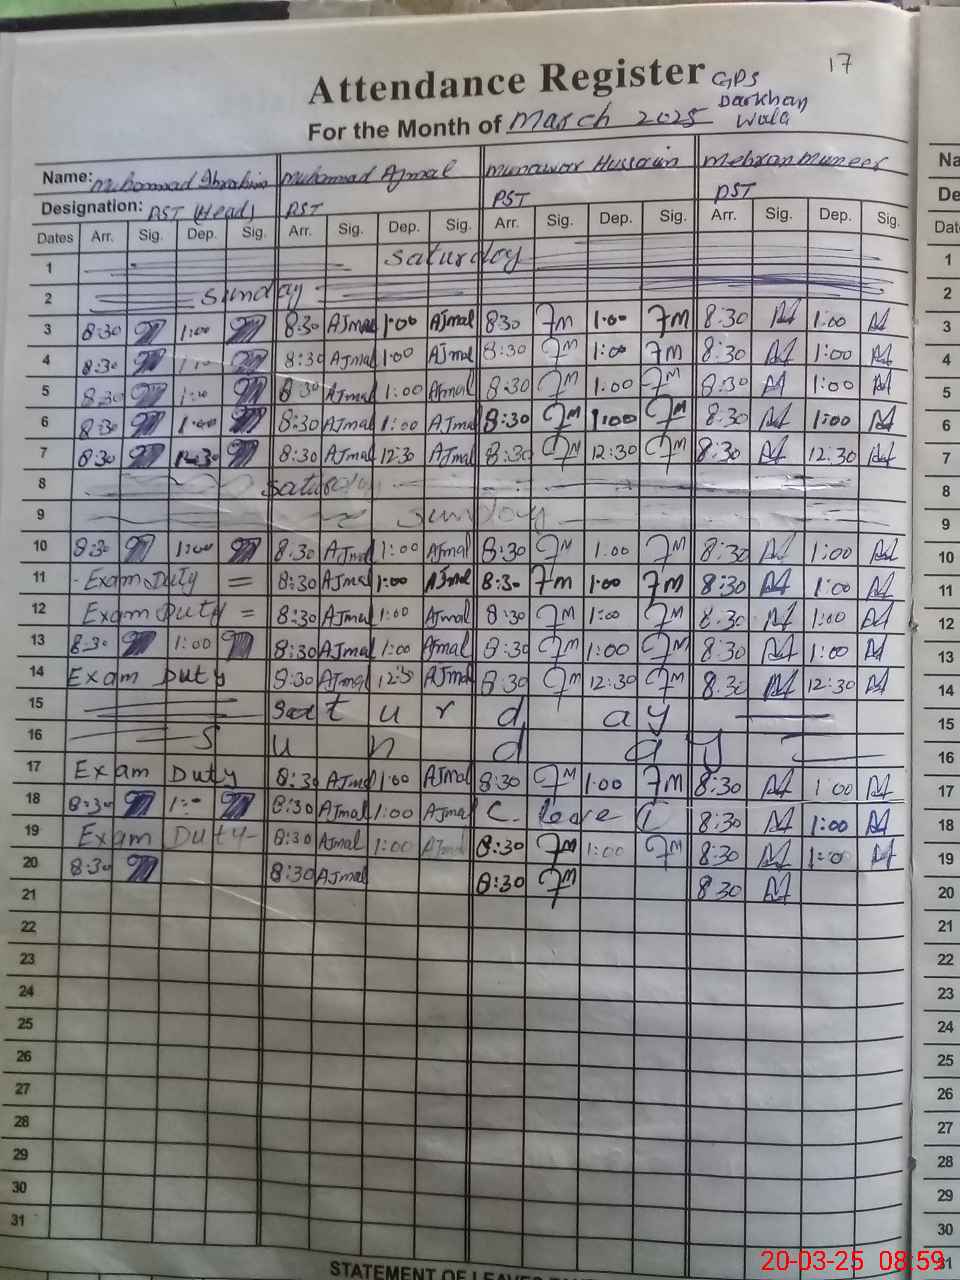 17
Attendance Register GPS
Darkhan
For the Month of March 2025 Wala
Name: Muhammad Ibrahim Muhammad Ajmal Munawar Hussain Mehran Muneer
Designation: PST (Head) PST PST PST
Dates Arr. Sig. Dep. Sig. Arr. Sig. Dep. Sig. Arr. Sig. Dep. Sig. Arr. Sig. Dep. Sig.
1 Saturday
2 Sunday
3 8:30 1:00 8:30 AJmal 1:00 AJmal 830 7m 1:00 7m 8:30 1:00
4 8:30 1:00 8:30 AJmal 1:00 AJmal 8:30 7m 1:00 7m 8:30 1:00
5 8:30 1:00 8:30 AJmal 1:00 AJmal 8:30 7m 1:00 7m 8:30 1:00
6 8:30 1:00 8:30 AJmal 1:00 AJmal 8:30 7m 1:00 7m 8:30 1:00
7 8:30 12:30 8:30 AJmal 12:30 AJmal 8:30 7m 12:30 7m 8:30 12:30
8 Saturday
9 Sunday
10 8:30 1:00 8:30 AJmal 1:00 AJmal 8:30 7m 1:00 7m 8:30 1:00
11 Exam Duty = 8:30 AJmal 1:00 AJmal 8:30 7m 1:00 7m 8:30 1:00
12 Exam Duty = 8:30 AJmal 1:00 AJmal 8:30 7m 1:00 7m 8:30 1:00
13 8:30 1:00 8:30 AJmal 1:00 AJmal 8:30 7m 1:00 7m 8:30 1:00
14 Exam Duty 8:30 AJmal 12:30 AJmal 8:30 7m 12:30 7m 8:30 12:30
15 Saturday
16 Sunday
17 Exam Duty 8:30 AJmal 1:00 AJmal 8:30 7m 1:00 7m 8:30 1:00
18 8:30 1:00 8:30 AJmal 1:00 AJmal C. leave 1 8:30 1:00
19 Exam Duty 8:30 AJmal 1:00 AJmal 8:30 7m 1:00 7m 8:30 1:00
20 8:30 8:30 AJmal 8:30 7m 8:30
21
22
23
24
25
26
27
28
29
30
31
STATEMENT OF LEAVES
Na
De
Dat
1
2
3
4
5
6
7
8
9
10
11
12
13
14
15
16
17
18
19
20
21
22
23
24
25
26
27
28
29
30
31
20-03-25 08:59